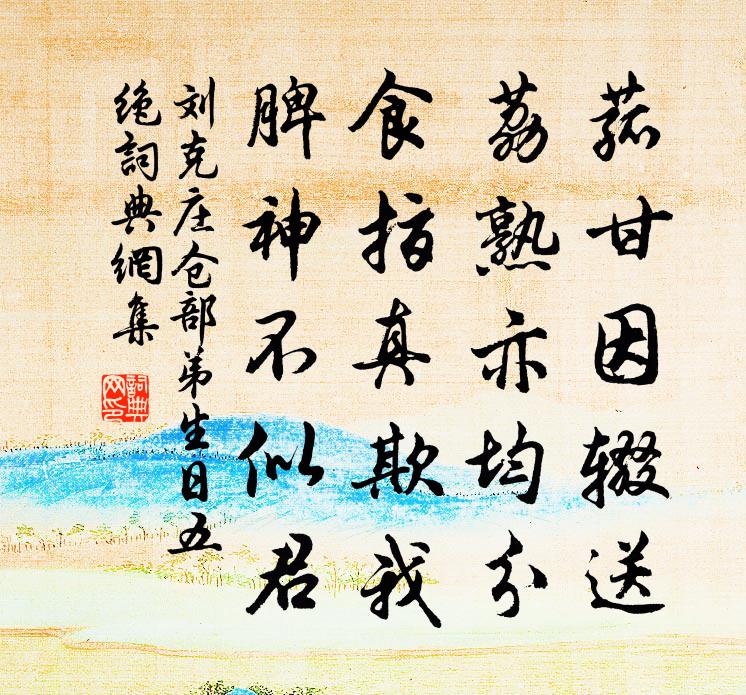 蔗甘因辍送
荔熟亦均分
食指真欺我
脾神不似君
刘克庄仓部弟生日五
绝詞典網集
詞典网印